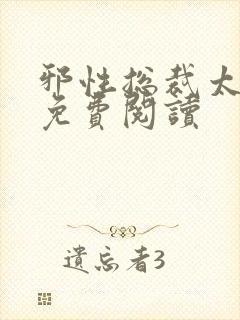 邪性总裁太
免費閱讀
遺忘者3